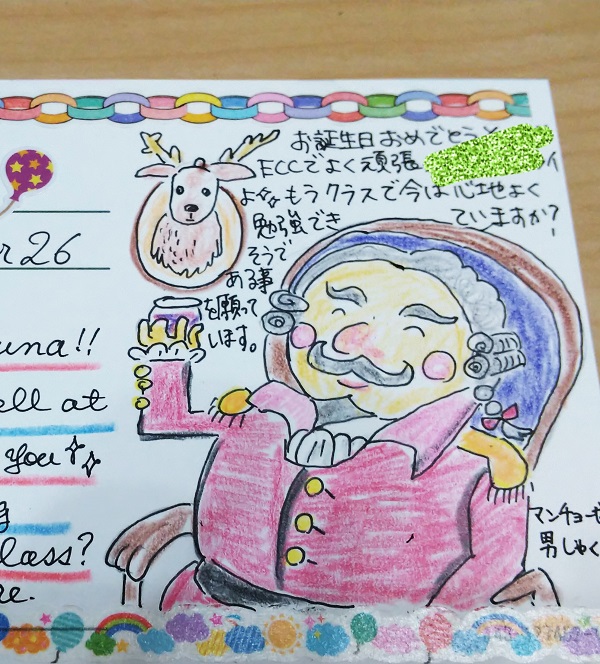 お誕生日おめでとう
ECCでよく頑張
もうクラスで今は心地よく
勉強でき
ていますか?
そうで
ある事
を願って
います。
26
una!!
ell at
you
lass?
re.
マンチョーゼ
男しゃく